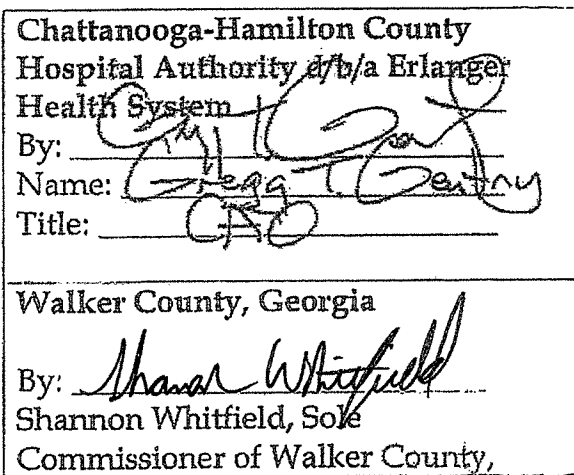 Chattanooga-Hamilton County
Hospital Authority d/b/a Erlanger
Health System
By:
Name: Gregg T. Gentry
Title: CAO
Walker County, Georgia
By: Shannon Whitfield
Shannon Whitfield, Sole
Commissioner of Walker County,